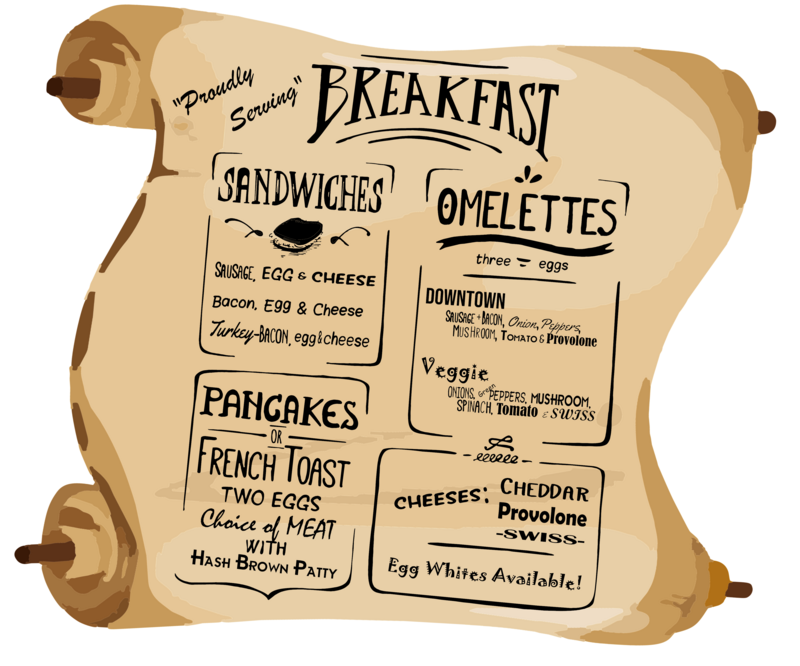 "Proudly
Serving"
BREAKFAST
SANDWICHES
SAUSAGE, EGG & CHEESE
Bacon, Egg & Cheese
Turkey-BACON, egg & cheese
PANCAKES
OR
FRENCH TOAST
TWO EGGS
Choice of MEAT
WITH
HASH BROWN PATTY
OMELETTES
three eggs
DOWNTOWN
SAUSAGE + BACON, Onion, Peppers,
MUSHROOM, TOMATO & Provolone
Veggie
ONIONS, Green PEPPERS, MUSHROOM,
SPINACH, Tomato & SWISS
CHEESES: CHEDDAR
Provolone
-SWISS-
Egg Whites Available!